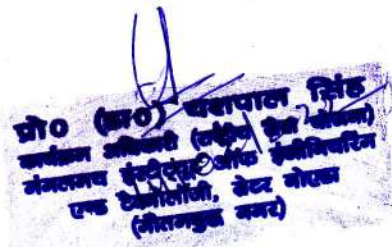 प्रो० (डा०) यशपाल सिंह
कार्यक्रम अधिकारी (राष्ट्रीय सेवा योजना)
मंगलमय इंस्टीट्यूट ऑफ इंजीनियरिंग
एण्ड टेक्नोलॉजी, ग्रेटर नोएडा
(गौतमबुद्ध नगर)